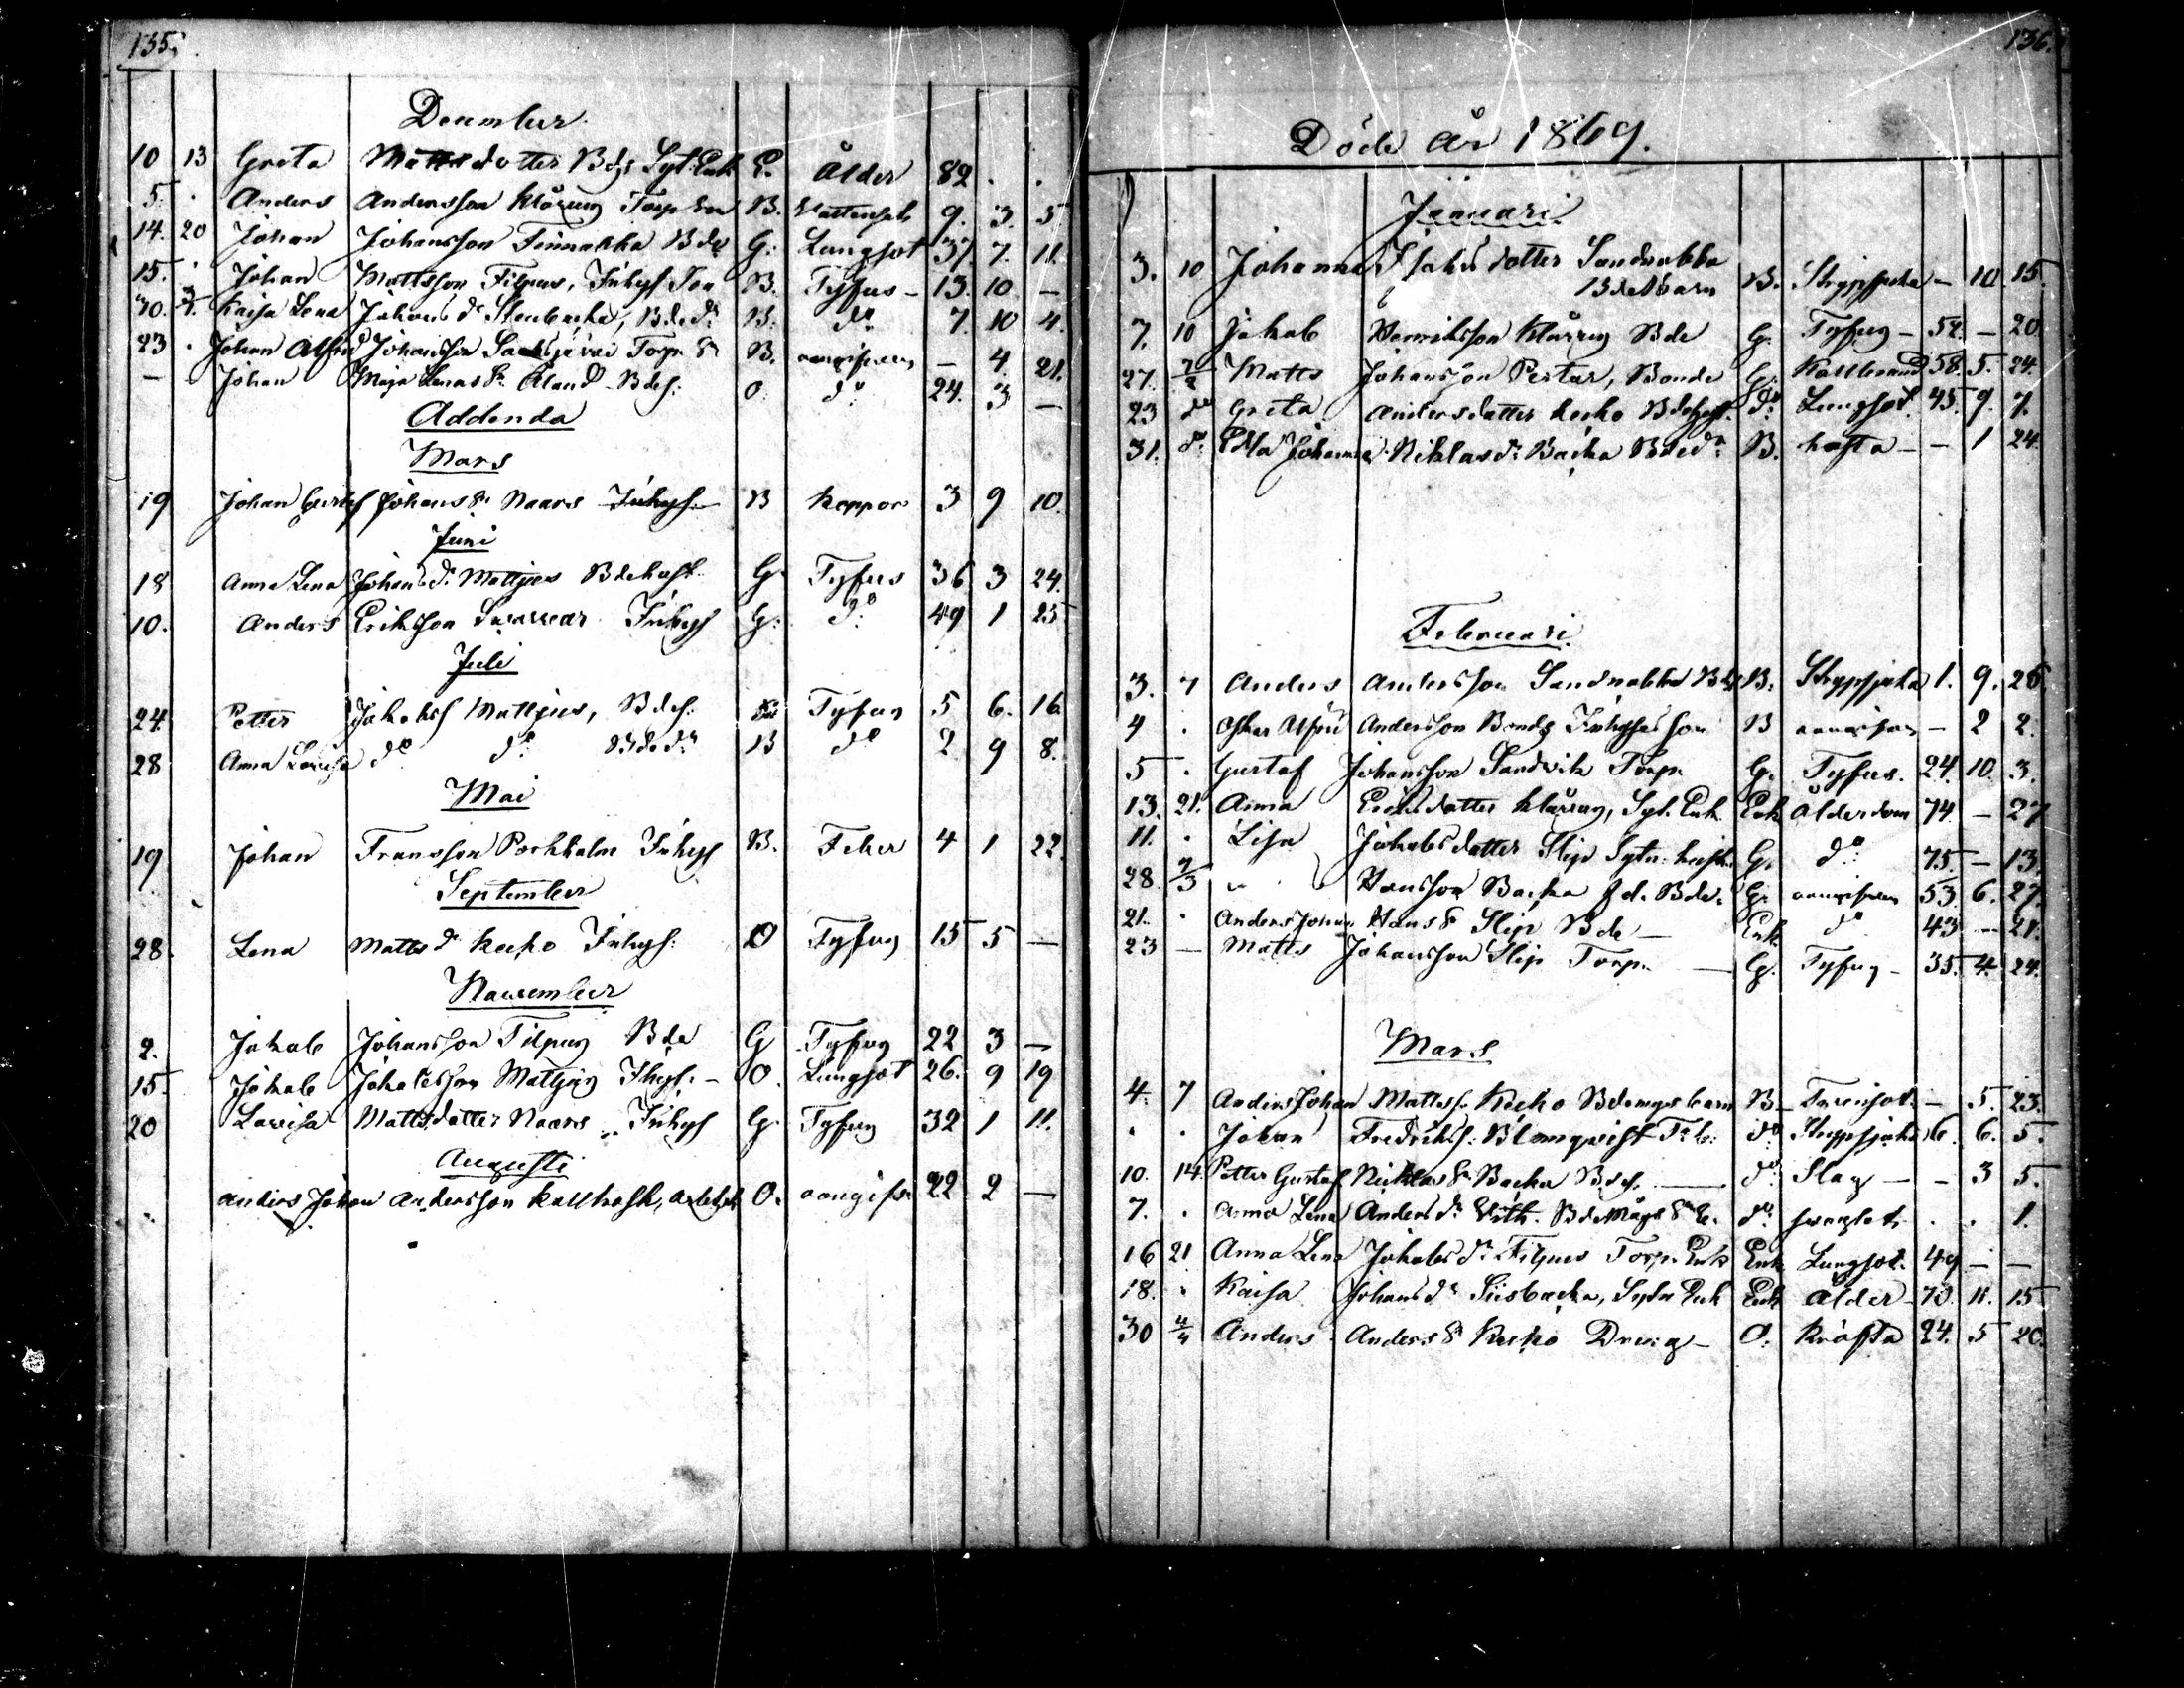 135.
December
10 13 Greta Mattsdotter Bds Syt. Enk E. Ålder 82 . .
5. . Anders Andersson Klåsrug Torp Son B. Vattensot 9. 3. 5
14. 20 Johan Johansson Finnabba Bde G. Lungsot 37. 7. 11.
15. . Johan Mattsson Filpus, Inhys Son B. Tyfus - 13. 10 -
30. Kaisa Lena Johans dr Stenbacka, Bdedr B. do 7. 10 4.
23 . Johan Alfred Johansson Torp Sn B. - 4. 21.
- . Johan Maja Lenas Sn Åland Bdes. O. do 24. 3 -
Addenda
Mars
19 Johan Johans Sn Naars Inhys. B Koppor 3 9 10.
Juni
18 Anna Lena Johans dr Mattjus Bdehust. G. Tyfus 36 3 24.
10. Anders Eriksson Inhys G. do 49 1 25
Juli
24. Petter Jakobs Mattjus, Bdes. Tyfus 5 6. 16.
28 Anna Lovisa do do Bdedr B do 2 9 8.
Mai
19 Johan Fransson Porkholm Inhys B. Feber 4 1 22.
September
28. Lena Matts dr Kecko Inhys. O Tyfus 15 5 -
November
2. Jakob Johansson Filpus Bde G Tyfus 22 3 -
15. Jakob Jakobsson Mattjus Ihys. - O. Lungsot 26. 9 19
20 Lovisa Mattsdotter Naars Inhys G. Tyfus 32 1 11.
Augusti
Anders Johan Andersson O. 22 2 -
136.
Döde år 1869.
Januari
3. 10 Johanna Isaksdotter Sandnabba
Bdebarn B. Strypsjuka - 10 15.
7. 10 Jakob Henriksson Klåsrug Bde G. Tyfus - 52. - 20.
27. 7/2 Matts Johansson Pertar, Bonde G. Kallbrand 58. 5. 24.
23 do Greta Andersdotter Kecko Bdehust. do Lungsot. 45. 9. 7.
31. do Edla Johanna Niklas dr Backa Bdedr B. Hosta - - 1 24.
Februari
3. 7 Anders Andersson Sandnabba B. Strypsjuka 1. 9. 26
4 . Oskar Alfred Andersson Bonds Inhyses son B - 2 2.
5 . Gustaf Johansson Sandvik Torp. G. Tyfus. 24. 10. 3.
13. 21. Anna Eriksdotter Klåsrug, Syt. Enk. Enk Ålderdom 74. - 27
11. . Lisa Jakobsdotter Slip Sytn. G. do 75 - 13.
28. 7/3 Hansson Backa f.d. Bde. G. 53. 6. 27.
21. . Anders Johan Hans Sn Slip Bde - Enk. do 43 - 21.
23 - Matts Johansson Slip Torp. - G. Tyfus - 35. 4. 24.
Mars
4. 7 Anders Johan Matts s. Kecko Bdemågs barn B. - 5. 23.
. . Johan Fredriks s. Blomqvist do Strypsjuka 6. 6. 5.
10. 14 Petter Gustaf Nicklas Sn Backa Bdes. - do Slag - - 3 5.
7. . Anna Lena Anders dr Bdemågs do . . 1.
16 21 Anna Lena Jakobs dr Filpus Torp. Enk Enk Lungsot. 49 - -
18. . Kaisa Johans dr Sisbacka, Sytn Enk Enk Ålder 73. 11. 15
30 4/4 Anders Anders Sn Kecko Dreng - O. Kräfta 24. 5 20.